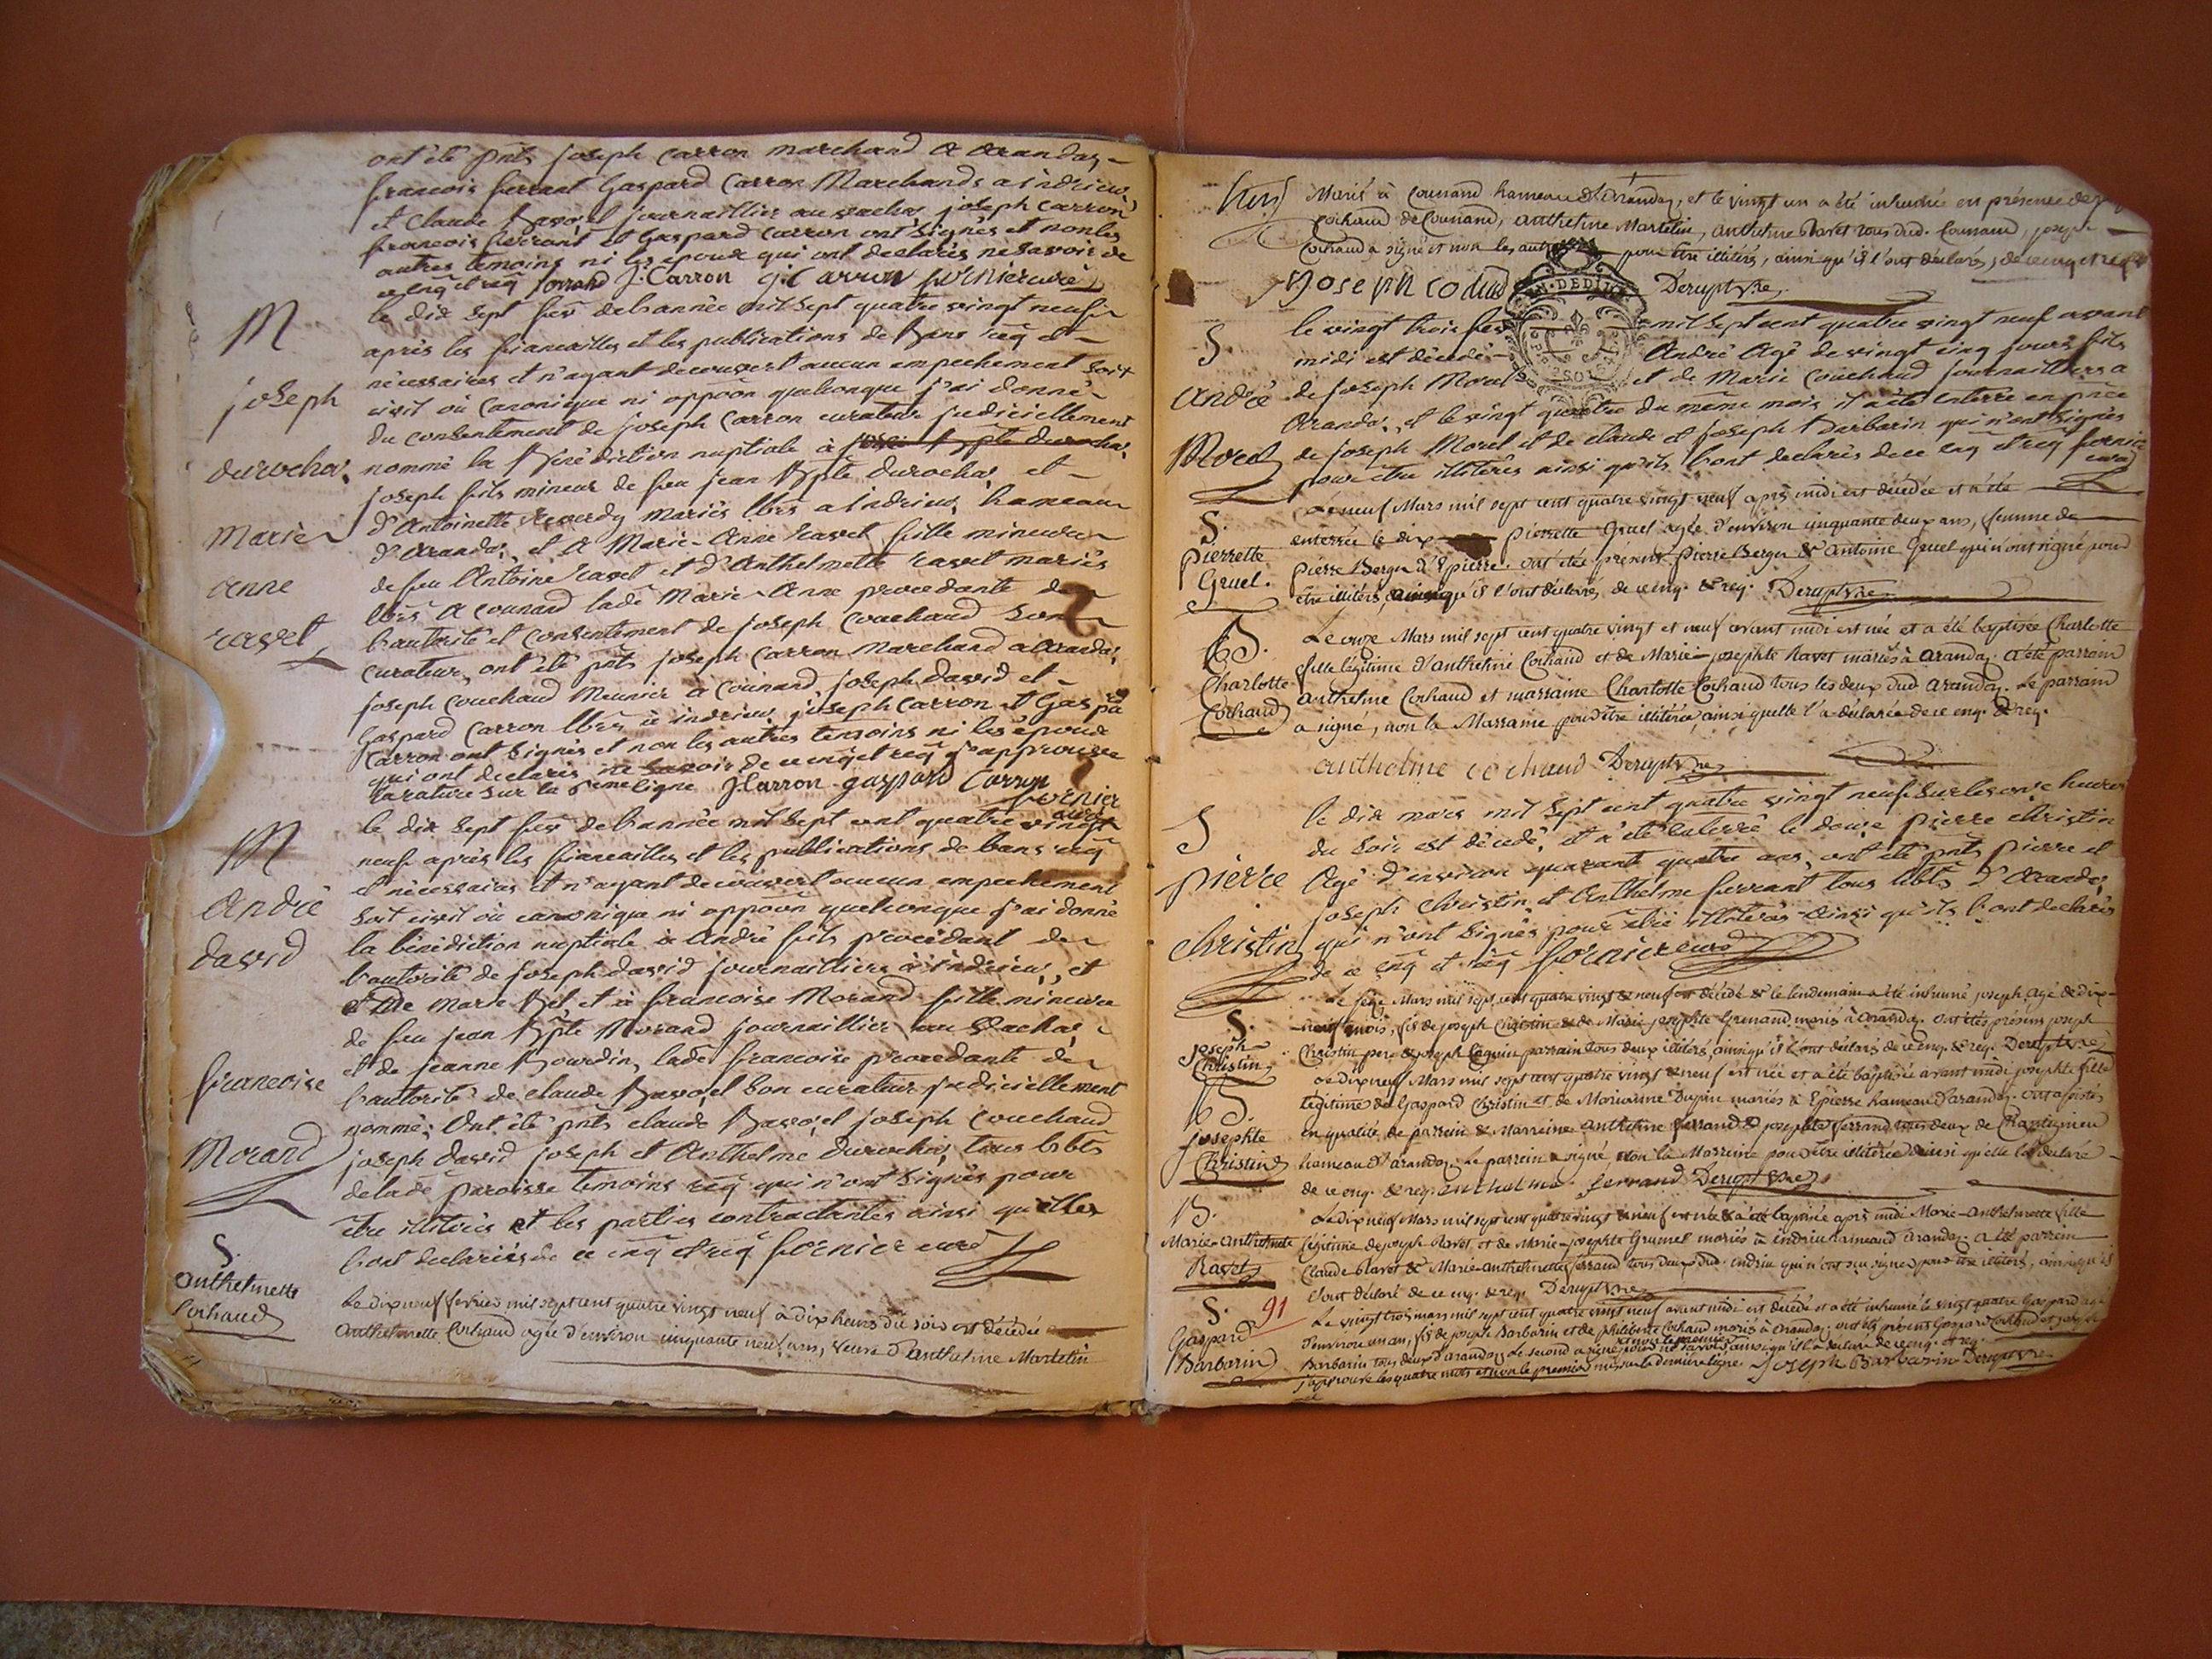 ont été pnts joseph Carron marchand a aranday
francois ferrant Gaspard Carron Marchands a indrieu,
et Claude journaillier au joseph Carron
francois ferrant et Gaspard Carron ont signés et non les
autres temoins ni les époux qui ont declarés ne savoir de
ce enq et req ferrand J. Carron g. Carron fornier curé
M
joseph
durochat
Marie
anne
ravet
le dix sept fev de l'année mil sept quatre vingt neuf
après les fiancailles et les publications de bans req et
nécessaires et n'ayant decouvert aucun empechement soit
civil où Canonique ni oppôon quelconque j'ai donné
du consentement de joseph Carron curateur judiciellement
nommé la Bénédiction nuptiale à
joseph fils mineur de feu jean Bpte durochat et
d'Antoinette Reverdy mariés lbrs a indrieu hameau
d'aranda, et a Marie-Anne ravet fille mineure
de feu Antoine ravet et d'Anthelmette ravet mariés
lbrs a counand lade Marie-Anne procedante de
l'autorité et consentement de joseph Couchaud son
curateur, ont été pnts joseph Carron Marchand a aranda,
joseph couchaud Meunier à Counand, joseph david et
Gaspard Carron lbrs à indrieu, joseph Carron et Gaspard
Carron ont signés et non les autres temoins ni les époux
qui ont declarés ne savoir de ce enq et req j'approuve
la rature sur la ligne J Carron gaspard Carron
fornier
curé
M
André
david
francoise
Morand
le dix sept fev de l'année mil sept cent quatre vingt
neuf après les fiancailles et les publications de bans req
et nécessaires et n'ayant decouvert aucun empechement
soit civil où canonique ni oppôon quelconque j'ai donné
la bénédiction nuptiale à André fils procédant de
l'autorité de joseph david journaillier à indrieu, et
de marie et à francoise Morand fille mineure
de feu jean Bpte Morand journaillier au
et de jeanne Bourdin, lade francoise procedante de
l'autorité de claude son curateur judiciellement
nommé. Ont été pnts claude joseph Couchaud
joseph david joseph et Anthelme durochat, tous lbts
de lade paroisse temoins req qui n'ont signés pour
être illiterés et les parties contractantes ainsi qu'elles
l'ont declarés de ce enq et req fornier curé
S.
anthelmette
Cochaud
Le dix neuf fevrier mil sept cent quatre vingt neuf à dix heures du soir est décédée
anthelmette Cochaud agée d'environ cinquante neuf ans, veuve d'anthelme Martelin
Mariés à Counand hameau d'Aranday, et le vingt un a été inhumée en présence de
Cochaud de Counand, anthelme Martelin, anthelme Ravet tous dud. Counand, joseph
Cochaud a signé et non les autres pour être illitérés, ainsi qu'ils l'ont déclarés, de ce enq et req
Joseph cochaud Derupt Vre
S.
André
Morel
le vingt trois fev mil sept cent quatre vingt neuf avant
midi est décédé André Agé de vingt cinq jours fils
de joseph Morel et de Marie Couchaud journailliers a
Aranda, et le vingt quatre du même mois il a été enterré en pnce
de joseph Morel et de claude et joseph Barbarin qui n'ont signés
pour être illiterés ainsi qu'ils l'ont declarés de ce enq et req fornier
curé
S.
Pierrette
Gruel.
Le neuf Mars mil sept cent quatre vingt neuf après midi est décédée et a été
enterrée le dix Pierrette Gruel agée d'environ cinquante deux ans, femme de
Pierre Berger d'Epierre. ont étés présents Pierre Berger & Antoine Gruel qui n'ont signé pour
être illitérés, ainsi qu'ils l'ont déclarés, de ce enq. & req. Derupt Vre
B.
Charlotte
Cochaud
Le onze Mars mil sept cent quatre vingt et neuf avant midi est née et a été baptisée Charlotte
fille légitime d'anthelme Cochaud et de Marie-josephte Ravet mariés à aranday. a été parrain
anthelme Cochaud et marraine Charlotte Cochaud tous les deux dud aranday. Le parrain
a signé, non la Marraine pour être illitérée, ainsi quelle l'a déclarée de ce enq. & req.
anthelme cochaud Derupt Vre
S
pierre
christin
le dix mars mil sept cent quatre vingt neuf sur les onze heures
du soir est décedé, et a été enterré le douze pierre christin
Agé d'environ quarant quatre ans, ont été pnts pierre et
joseph christin et Anthelme ferrant tous lbts d'Aranda,
qui n'ont signés pour être illiterés ainsi qu'ils l'ont declarés
de ce enq et req fornier curé
S.
joseph
Christin
Le seize Mars mil sept cent quatre vingt & neuf est décédé & le lendemain a été inhumé joseph, agé de dix
neuf mois, fils de joseph Christin & de Marie josephte Grenand mariés à Aranday. ont étés présens joseph
Christin pere & joseph parrain tous deux illitérés, ainsi qu'ils l'ont déclarés de ce enq. & req. Derupt Vre
B.
josephte
Christin
Le dix neuf Mars mil sept cent quatre vingt & neuf est née et a été baptisée avant midi josephte fille
légitime de Gaspard Christin et de Marianne Dupin mariés à Epierre hameau d'aranday. ont assistés
en qualité de parrein & Marreine anthelme ferrand & josephte ferrand tous deux de
hameau d'aranday. Le parrein a signé, non la Marreine pour être illitérée, ainsi qu'elle l'a déclaré
de ce enq. & req. anthelme ferrand Derupt Vre
B.
Marie-anthelmette
Ravet
Le dix neuf Mars mil sept cent quatre vingt & neuf est née & a été baptisée après midi Marie-anthelmette fille
légitime de joseph Ravet et de Marie-josephte Grumel mariés à indrieu hameaud aranday. a été parrein
Claude Ravet & Marie-anthelmette ferrand tous deux dud. indrieu qui n'ont su signer pour être illitérés, ainsi qu'ils
l'ont déclaré de ce enq. & req. Derupt Vre
S. 91
Gaspard
Barbarin
Le vingt trois mars mil sept cent quatre vingt neuf avant midi est décédé et a été inhumé le vingt quatre Gaspard agé
d'environ un an, fils de joseph Barbarin et de philiberte Cochaud mariés à aranday. ont étés présens Gaspard Cochaud et joseph
et non le premier
Barbarin tous deux d'aranday. Le second a signé pour ne savoir ainsi qu'il l'a déclaré de ce enq. et req.
j'approuve les quatre mots et non le premier mis sur la derniere ligne. Joseph Barbarin Derupt Vre